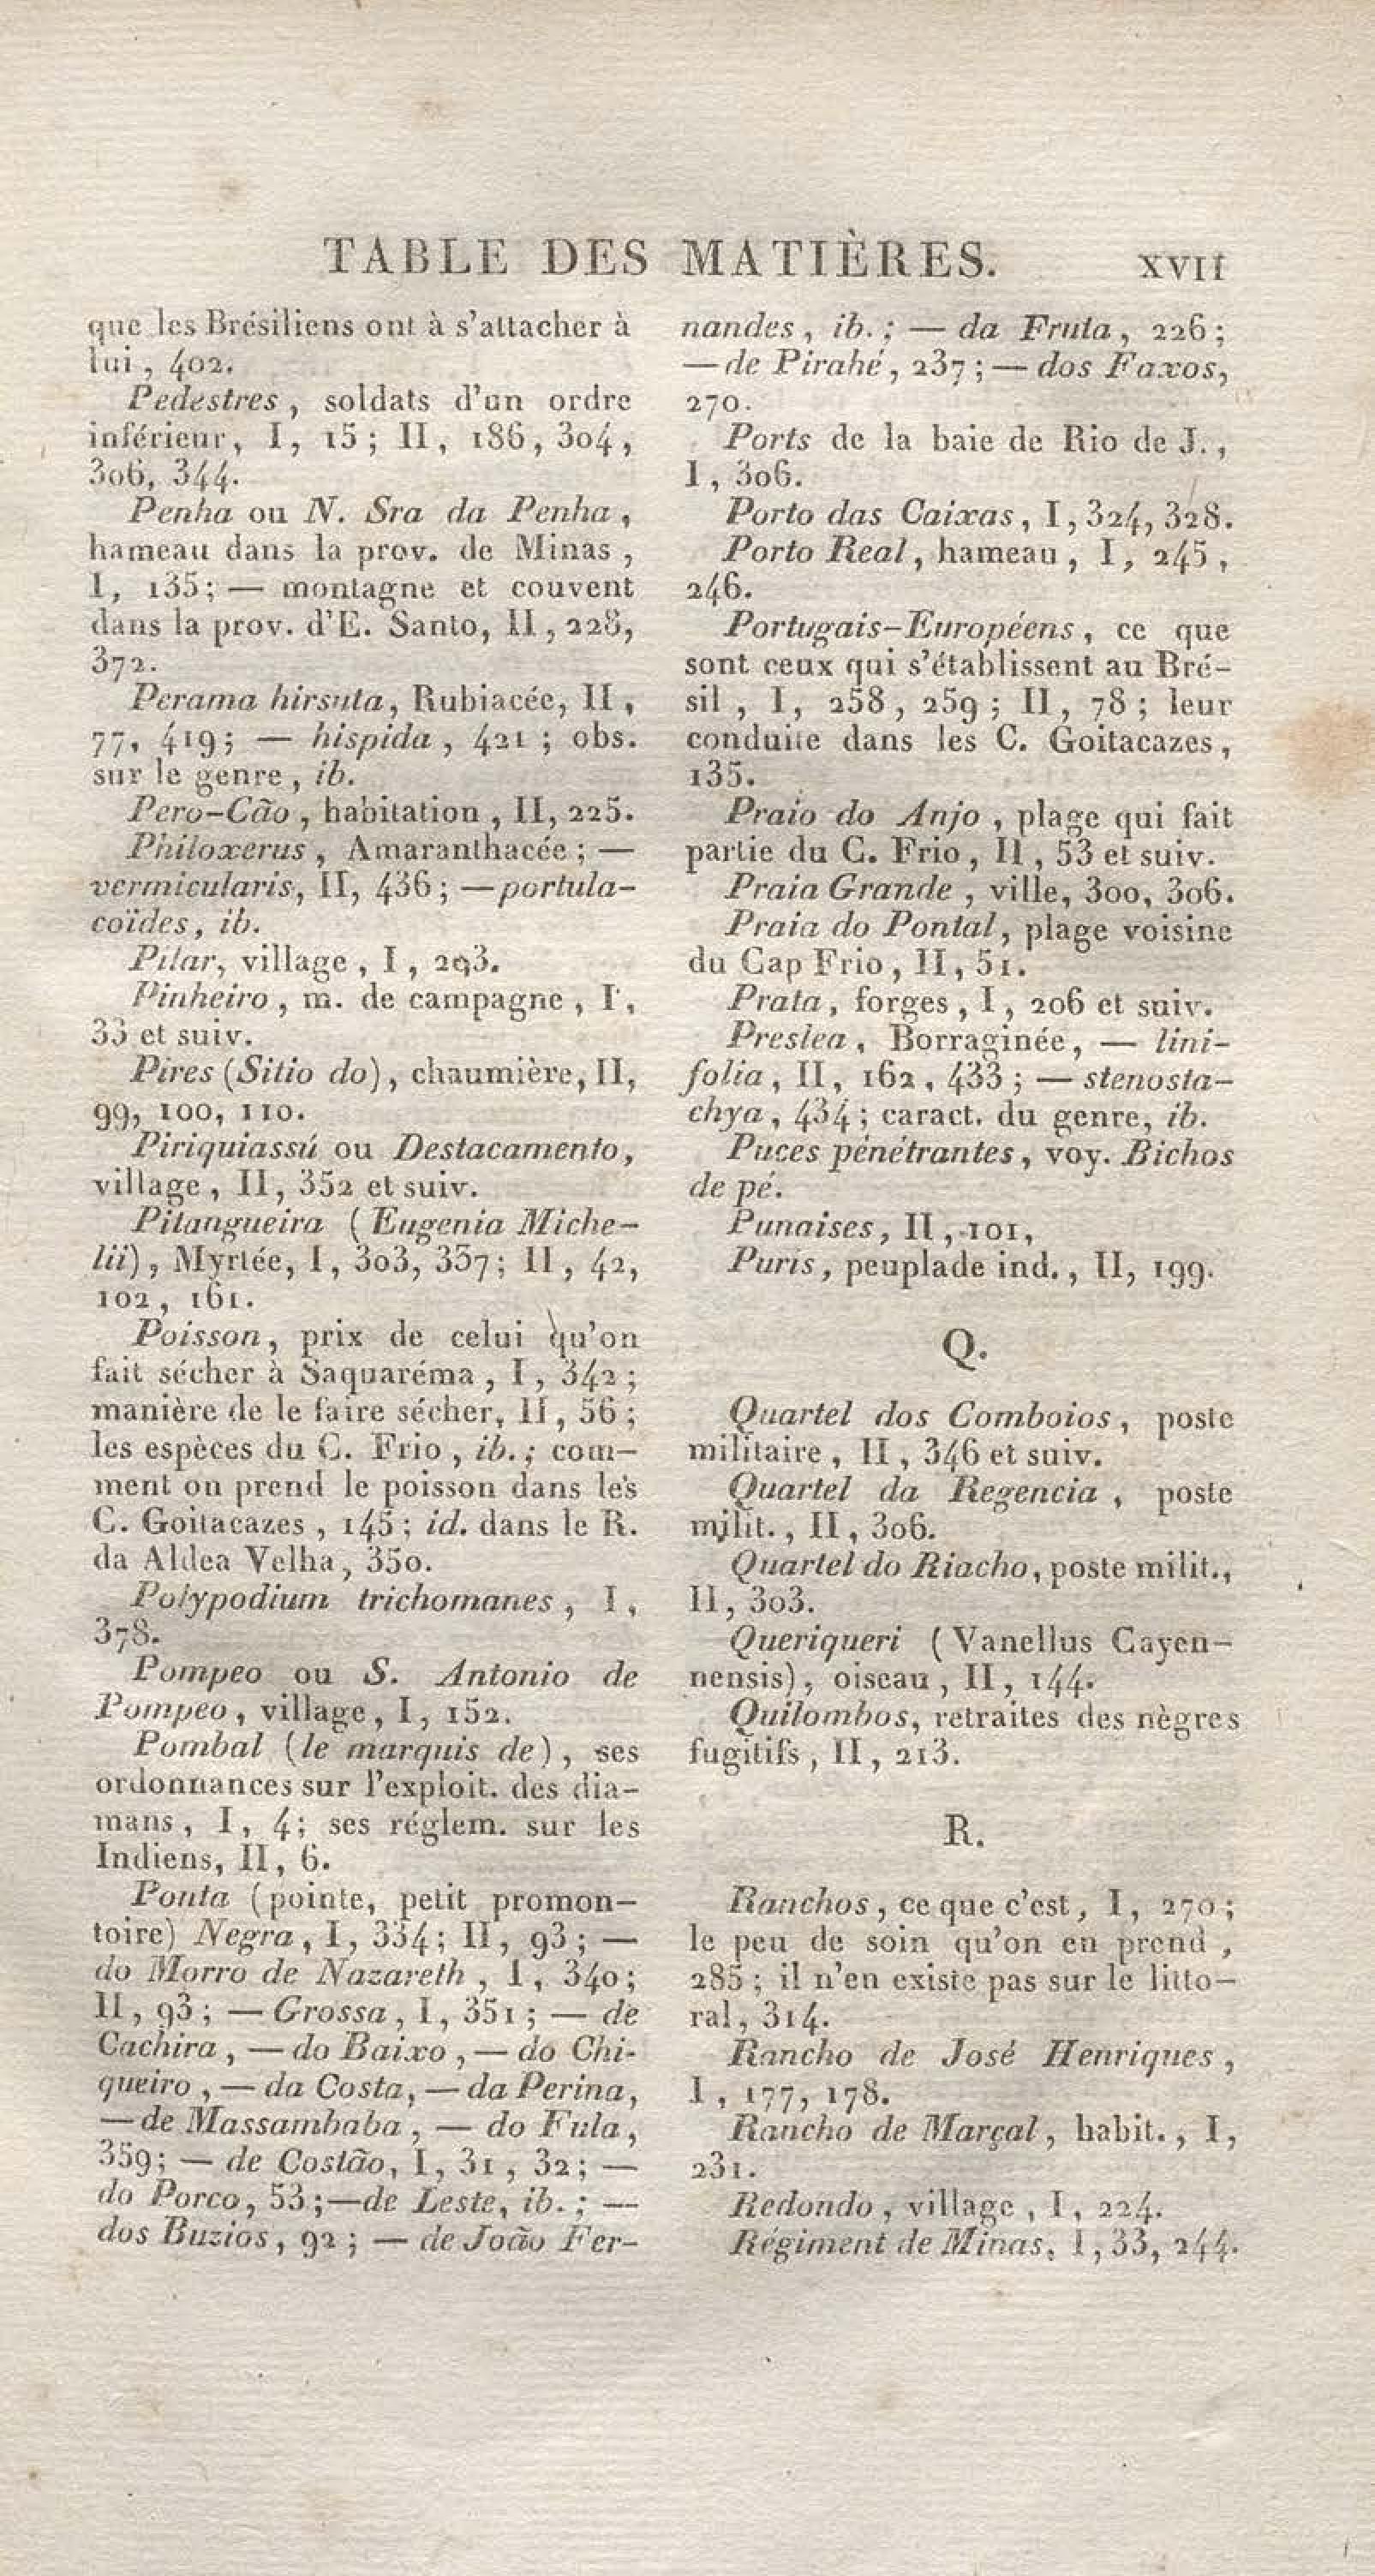 TABLE DES MATIÈRES. XVII
que les Brésiliens ont à s'attacher à
lui, 402.
Pedestres, soldats d'un ordre
inférieur, I, 15; II, 186, 304,
306, 344.
Penha ou N. Sra da Penha,
hameau dans la prov. de Minas,
I, 135; — montagne et couvent
dans la prov. d'E. Santo, II, 228,
372.
Perama hirsuta, Rubiacée, II,
77, 419; — hispida, 421; obs.
sur le genre, ib.
Pero-Cão, habitation, II, 225.
Philoxerus, Amaranthacée; —
vermicularis, II, 436; — portula-
coïdes, ib.
Pilar, village, I, 293.
Pinheiro, m. de campagne, I,
33 et suiv.
Pires (Sitio do), chaumière, II,
99, 100, 110.
Piriquiassú ou Destacamento,
village, II, 352 et suiv.
Pitangueira (Eugenia Miche-
lii), Myrtée, I, 303, 337; II, 42,
102, 161.
Poisson, prix de celui qu'on
fait sécher à Saquaréma, I, 342;
manière de le faire sécher, II, 56;
les espèces du C. Frio, ib.; com-
ment on prend le poisson dans les
C. Goitacazes, 145; id. dans le R.
da Aldea Velha, 350.
Polypodium trichomanes, I,
378.
Pompeo ou S. Antonio de
Pompeo, village, I, 152.
Pombal (le marquis de), ses
ordonnances sur l'exploit. des dia-
mans, I, 4; ses réglem. sur les
Indiens, II, 6.
Ponta (pointe, petit promon-
toire) Negra, I, 334; II, 93; —
do Morro de Nazareth, I, 340;
II, 93; — Grossa, I, 351; — de
Cachira, — do Baixo, — do Chi-
queiro, — da Costa, — da Perina,
— de Massambaba, — do Fula,
359; — de Costão, I, 31, 32; —
do Porco, 53; — de Leste, ib.; —
dos Buzios, 92; — de João Fer-
nandes, ib.; — da Fruta, 226;
— de Pirahé, 237; — dos Faxos,
270.
Ports de la baie de Rio de J.,
I, 306.
Porto das Caixas, I, 324, 328.
Porto Real, hameau, I, 245,
246.
Portugais-Européens, ce que
sont ceux qui s'établissent au Bré-
sil, I, 258, 259; II, 78; leur
conduite dans les C. Goitacazes,
135.
Praio do Anjo, plage qui fait
partie du C. Frio, II, 53 et suiv.
Praia Grande, ville, 300, 306.
Praia do Pontal, plage voisine
du Cap Frio, II, 51.
Prata, forges, I, 206 et suiv.
Preslea, Borraginée, — lini-
folia, II, 162, 433; — stenosta-
chya, 434; caract. du genre, ib.
Puces pénétrantes, voy. Bichos
de pé.
Punaises, II, 101,
Puris, peuplade ind., II, 199.
Q.
Quartel dos Comboios, poste
militaire, II, 346 et suiv.
Quartel da Regencia, poste
milit., II, 306.
Quartel do Riacho, poste milit.,
II, 303.
Queriqueri (Vanellus Cayen-
nensis), oiseau, II, 144.
Quilombos, retraites des nègres
fugitifs, II, 213.
R.
Ranchos, ce que c'est, I, 270;
le peu de soin qu'on en prend,
285; il n'en existe pas sur le litto-
ral, 314.
Rancho de José Henriques,
I, 177, 178.
Rancho de Marçal, habit., I,
231.
Redondo, village, I, 224.
Régiment de Minas, I, 33, 244.